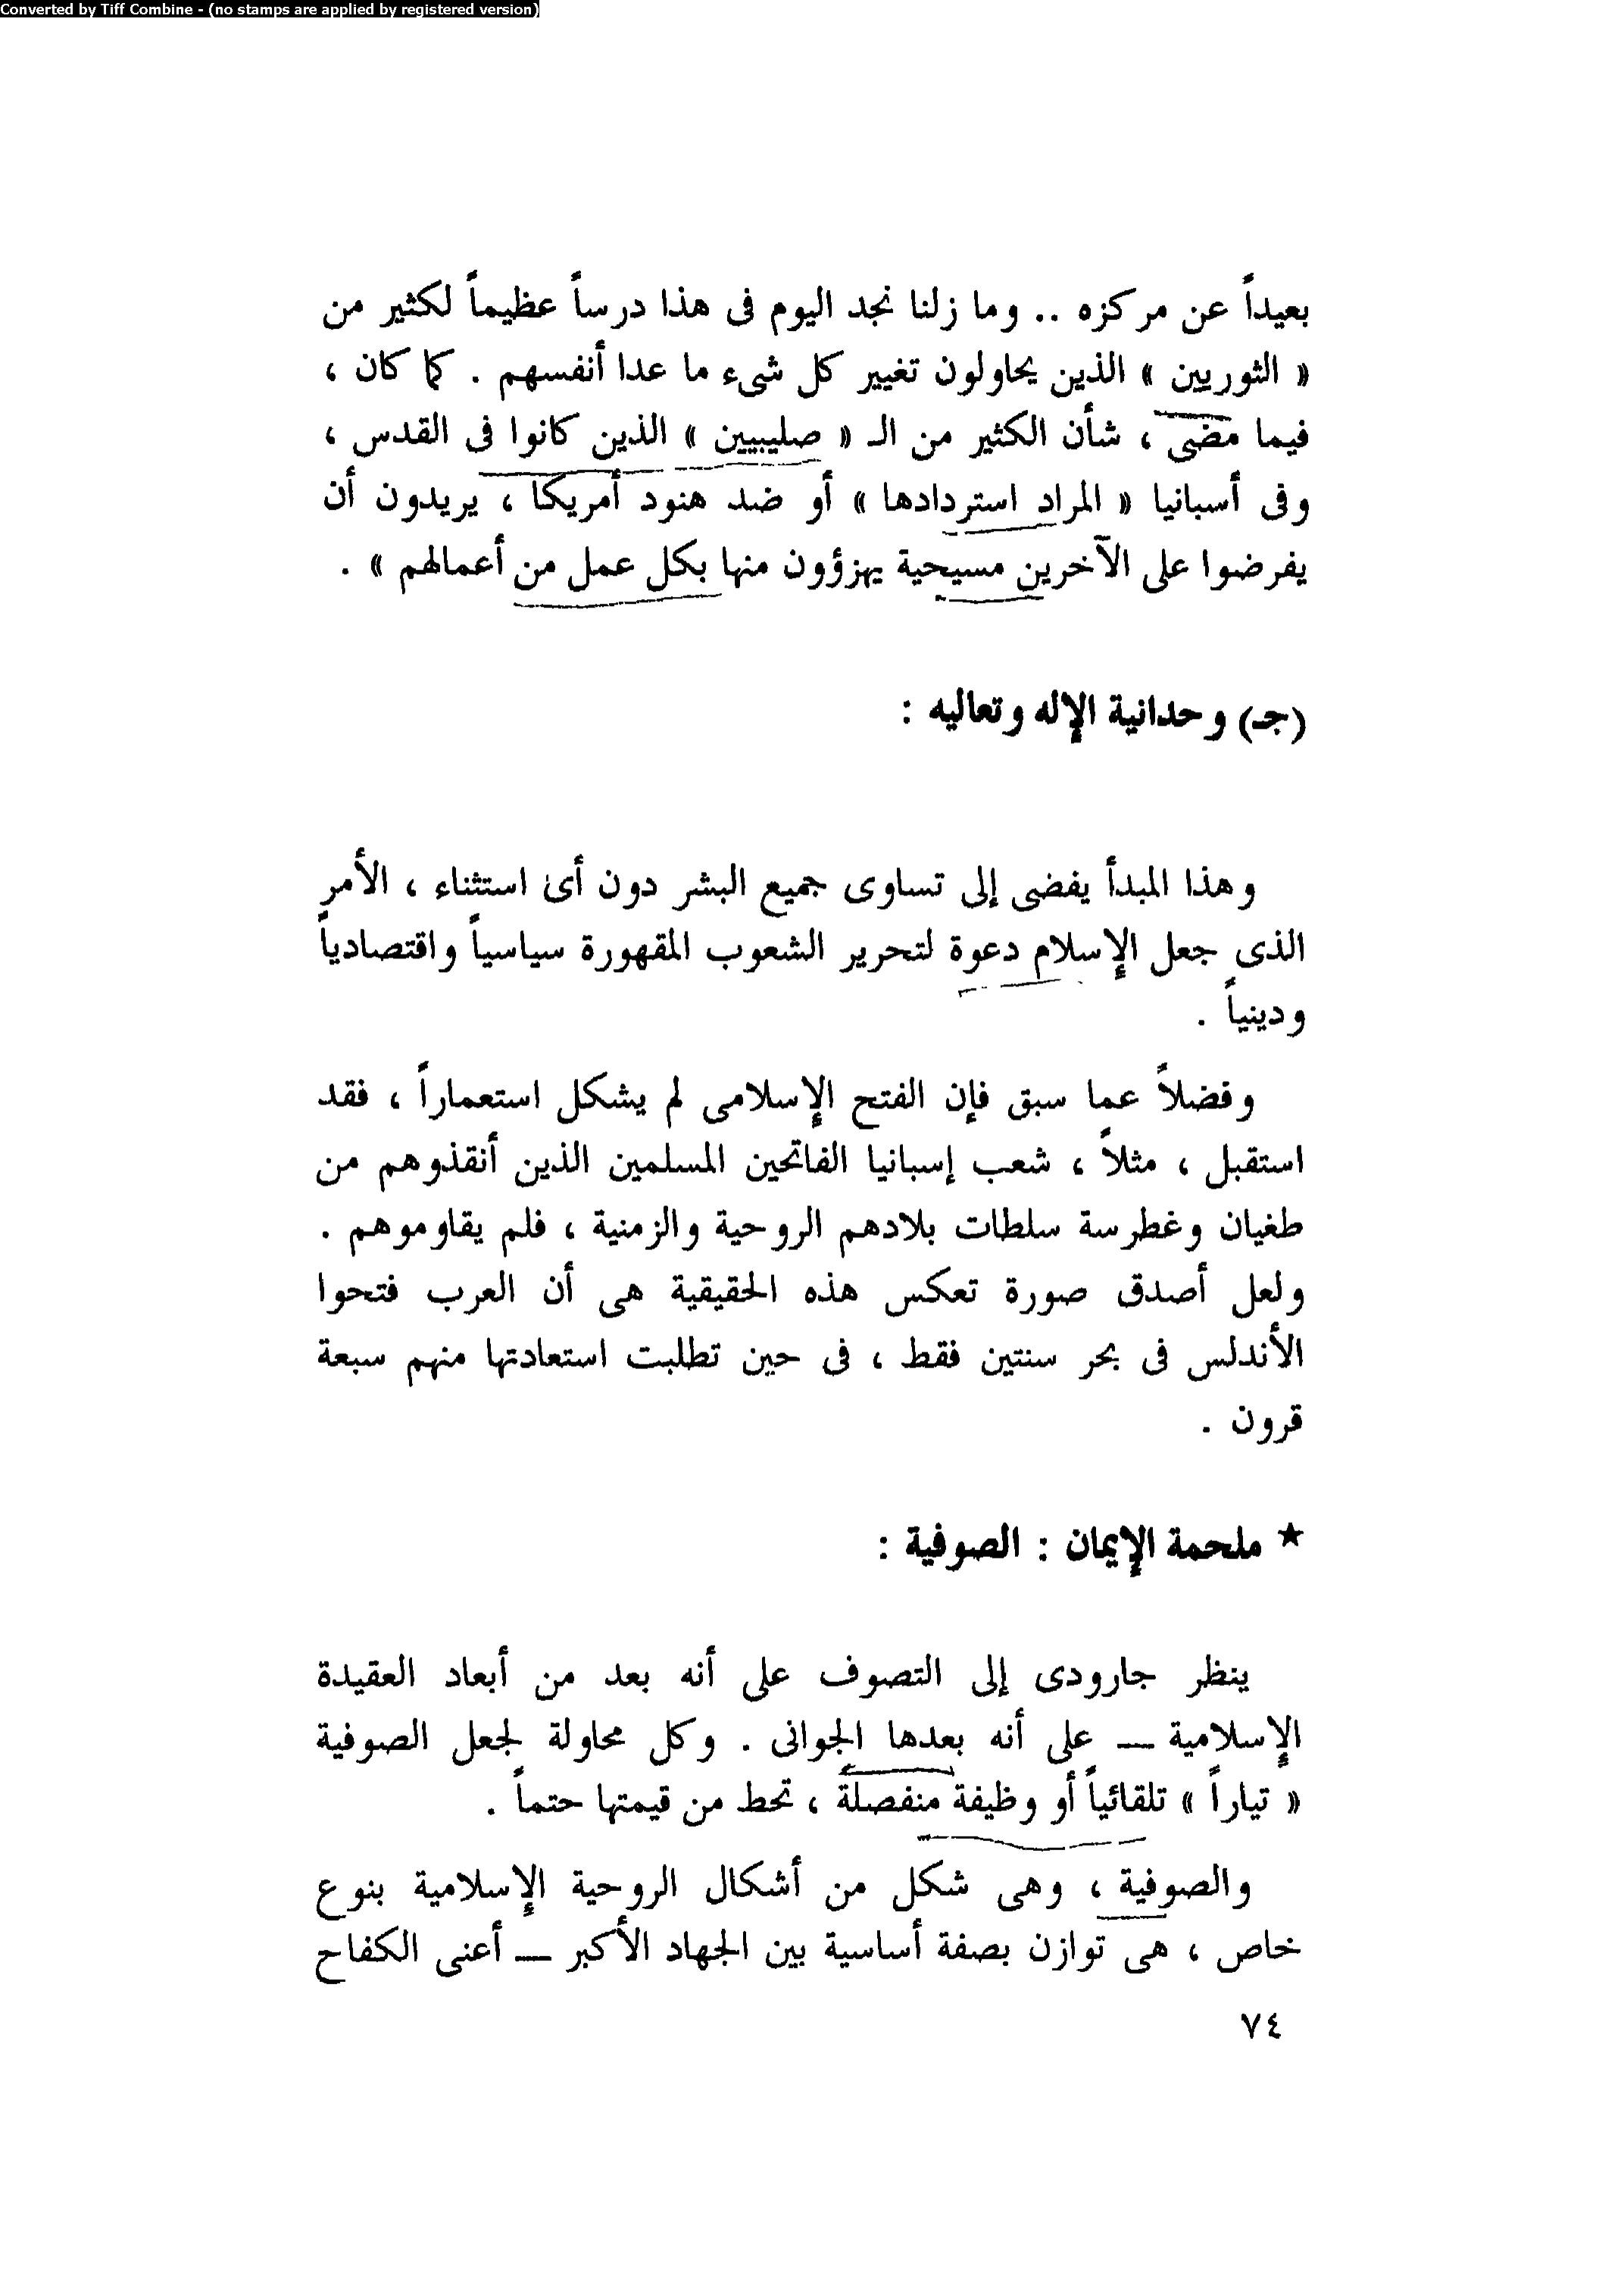 Converted by Tiff Combine - (no stamps are applied by registered version)
بعيداً عن مركزه .. وما زلنا نجد اليوم فى هذا درساً عظيماً لكثير من
« الثوريين » الذين يحاولون تغيير كل شىء ما عدا أنفسهم . كما كان ،
فيما مضى ، شأن الكثير من الـ « صليبيين » الذين كانوا فى القدس ،
وفى أسبانيا « المراد استردادها » أو ضد هنود أمريكا ، يريدون أن
يفرضوا على الآخرين مسيحية يهزؤون منها بكل عمل من أعمالهم » .
(جـ) وحدانية الإله وتعاليه :
وهذا المبدأ يفضى إلى تساوى جميع البشر دون أى استثناء ، الأمر
الذى جعل الإسلام دعوة لتحرير الشعوب المقهورة سياسياً واقتصادياً
ودينياً .
وفضلاً عما سبق فإن الفتح الإسلامى لم يشكل استعماراً ، فقد
استقبل ، مثلاً ، شعب إسبانيا الفاتحين المسلمين الذين أنقذوهم من
طغيان وغطرسة سلطات بلادهم الروحية والزمنية ، فلم يقاوموهم .
ولعل أصدق صورة تعكس هذه الحقيقية هى أن العرب فتحوا
الأندلس فى بحر سنتين فقط ، فى حين تطلبت استعادتها منهم سبعة
قرون .
★ ملحمة الإيمان : الصوفية :
ينظر جارودى إلى التصوف على أنه بعد من أبعاد العقيدة
الإسلامية — على أنه بعدها الجوانى . وكل محاولة لجعل الصوفية
« تياراً » تلقائياً أو وظيفة منفصلة ، تحط من قيمتها حتماً .
والصوفية ، وهى شكل من أشكال الروحية الإسلامية بنوع
خاص ، هى توازن بصفة أساسية بين الجهاد الأكبر — أعنى الكفاح
٧٤